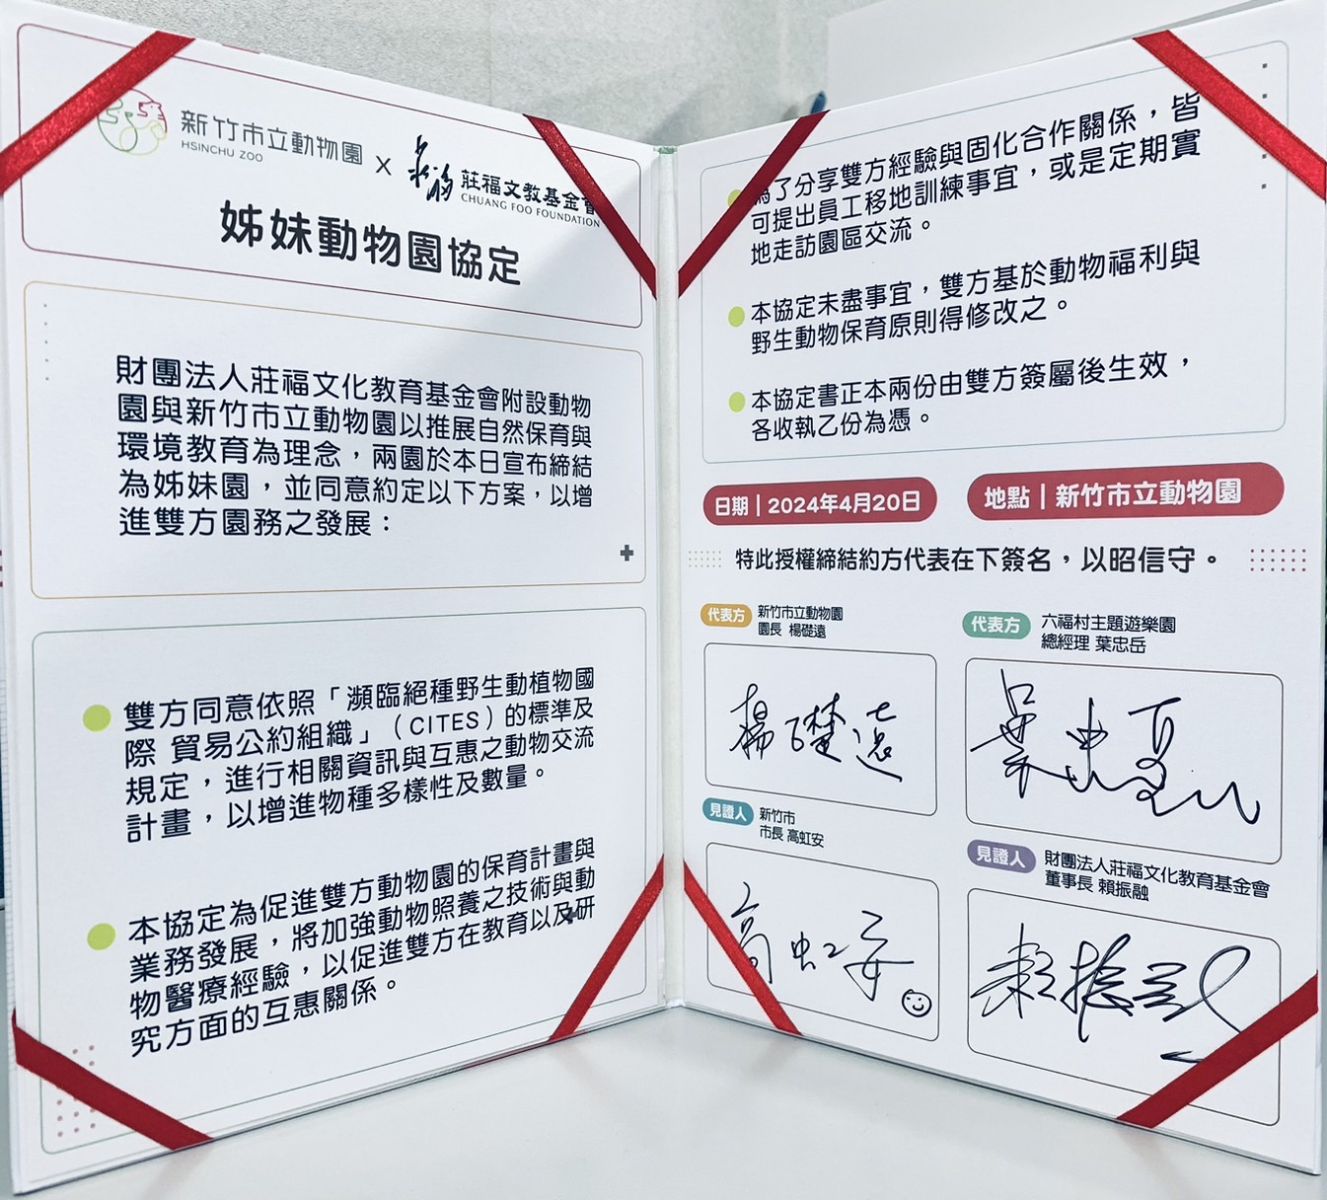 新竹市立動物園
HSINCHU ZOO
x
莊福文教基金會
CHUANG FOO FOUNDATION
姊妹動物園協定
財團法人莊福文化教育基金會附設動物
園與新竹市立動物園以推展自然保育與
環境教育為理念，兩園於本日宣布締結
為姊妹園，並同意約定以下方案，以增
進雙方園務之發展：
雙方同意依照「瀕臨絕種野生動植物國
際 貿易公約組織」（CITES）的標準及
規定，進行相關資訊與互惠之動物交流
計畫，以增進物種多樣性及數量。
本協定為促進雙方動物園的保育計畫與
業務發展，將加強動物照養之技術與動
物醫療經驗，以促進雙方在教育以及研
究方面的互惠關係。
為了分享雙方經驗與固化合作關係，皆
可提出員工移地訓練事宜，或是定期實
地走訪園區交流。
本協定未盡事宜，雙方基於動物福利與
野生動物保育原則得修改之。
本協定書正本兩份由雙方簽屬後生效，
各收執乙份為憑。
日期｜2024年4月20日
地點｜新竹市立動物園
特此授權締結約方代表在下簽名，以昭信守。
代表方
新竹市立動物園
園長 楊礎遠
楊礎遠
代表方
六福村主題遊樂園
總經理 葉忠岳
葉忠岳
見證人
新竹市
市長 高虹安
高虹安
見證人
財團法人莊福文化教育基金會
董事長 賴振融
賴振融